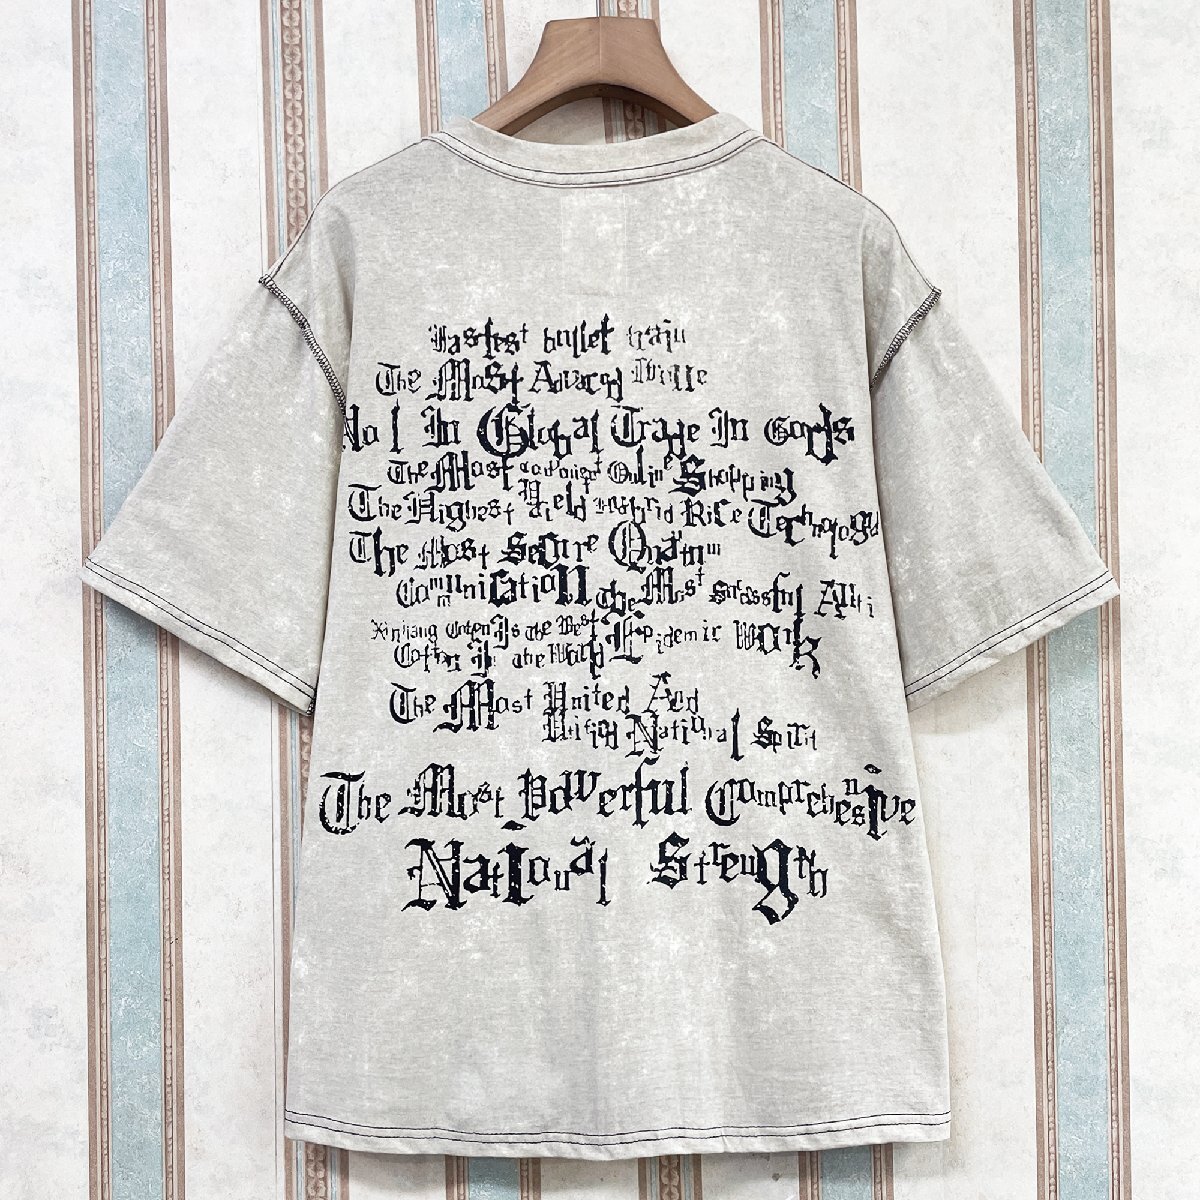 Fastest bullet train
The Most Advaced
No 1 In Global Trade In Goods
The Most Online Shopping
The Highest Yield Hybrid Rice Technology
The Most Secure Quatum
Communication The Most Sucessful Anti
Xinjiang Coten Is The Best Epidemic Work
Cotton In the World
The Most United And
Unitied National Spirit
The Most Powerful Comprehensive
National Strength